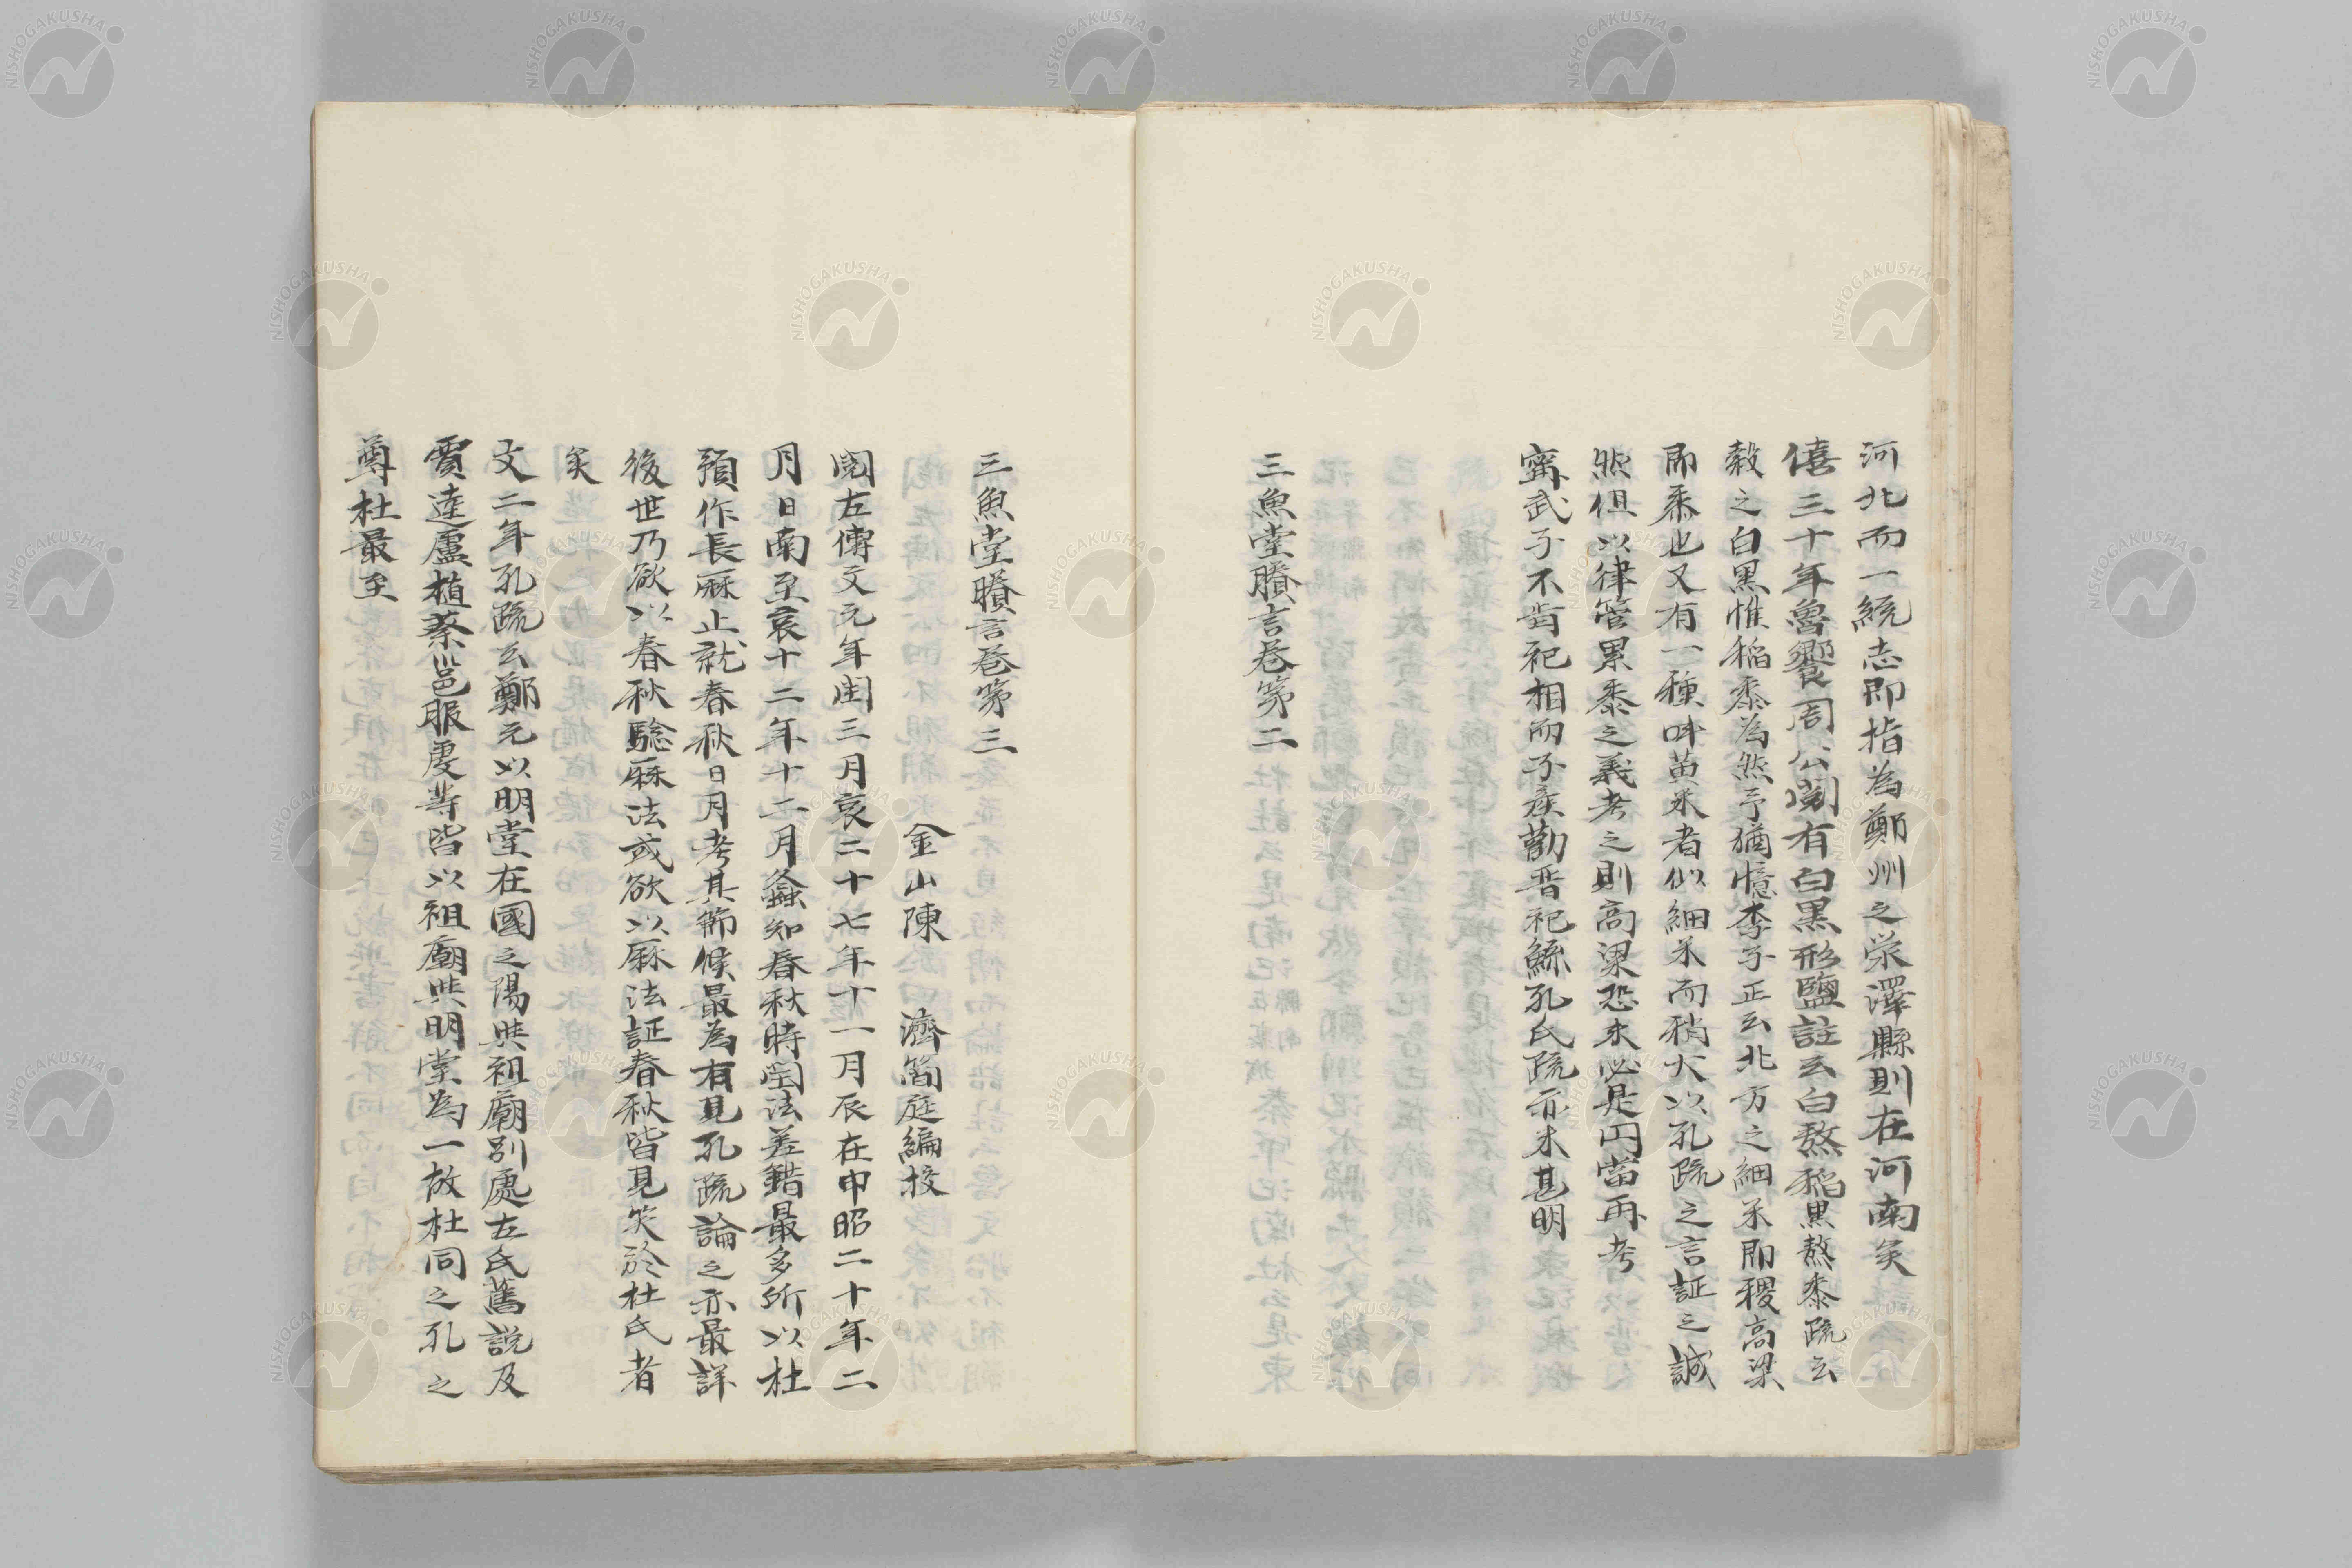 河北而一統志即指為鄭州之滎澤縣則在河南矣
僖三十年魯饗周公閱有白黑形鹽註云白熬稲黒熬黍疏云
穀之白黒惟稲黍為然予猶憶李子正云北方之細米即稷高粱
即黍也又有一種呌黄米者似細米而稍大以孔疏之言証之誠
然但以律管累黍之義考之則高粱恐未必是円當再考
甯武子不肯祀相而子産勸晋祀鯀孔氏疏亦未甚明
三魚堂賸言卷第二
三魚堂賸言卷第三
金山陳　濟簡庭編挍
閱左傳文元年閏三月哀二十七年十一月辰在申昭二十年二
月日南至哀十二年十二月螽知春秋時閏法差錯最多所以杜
預作長厤止就春秋日月考其節候最為有見孔疏論之亦最詳
後世乃欲以春秋騐厤法或欲以厤法証春秋皆見笑於杜氏者
矣
文二年孔疏云鄭元以明堂在國之陽與祖廟別處左氏舊説及
賈逵盧植蔡邕服虔等皆以祖廟與明堂為一故杜同之孔之
尊杜最至
NISHOGAKUSHA